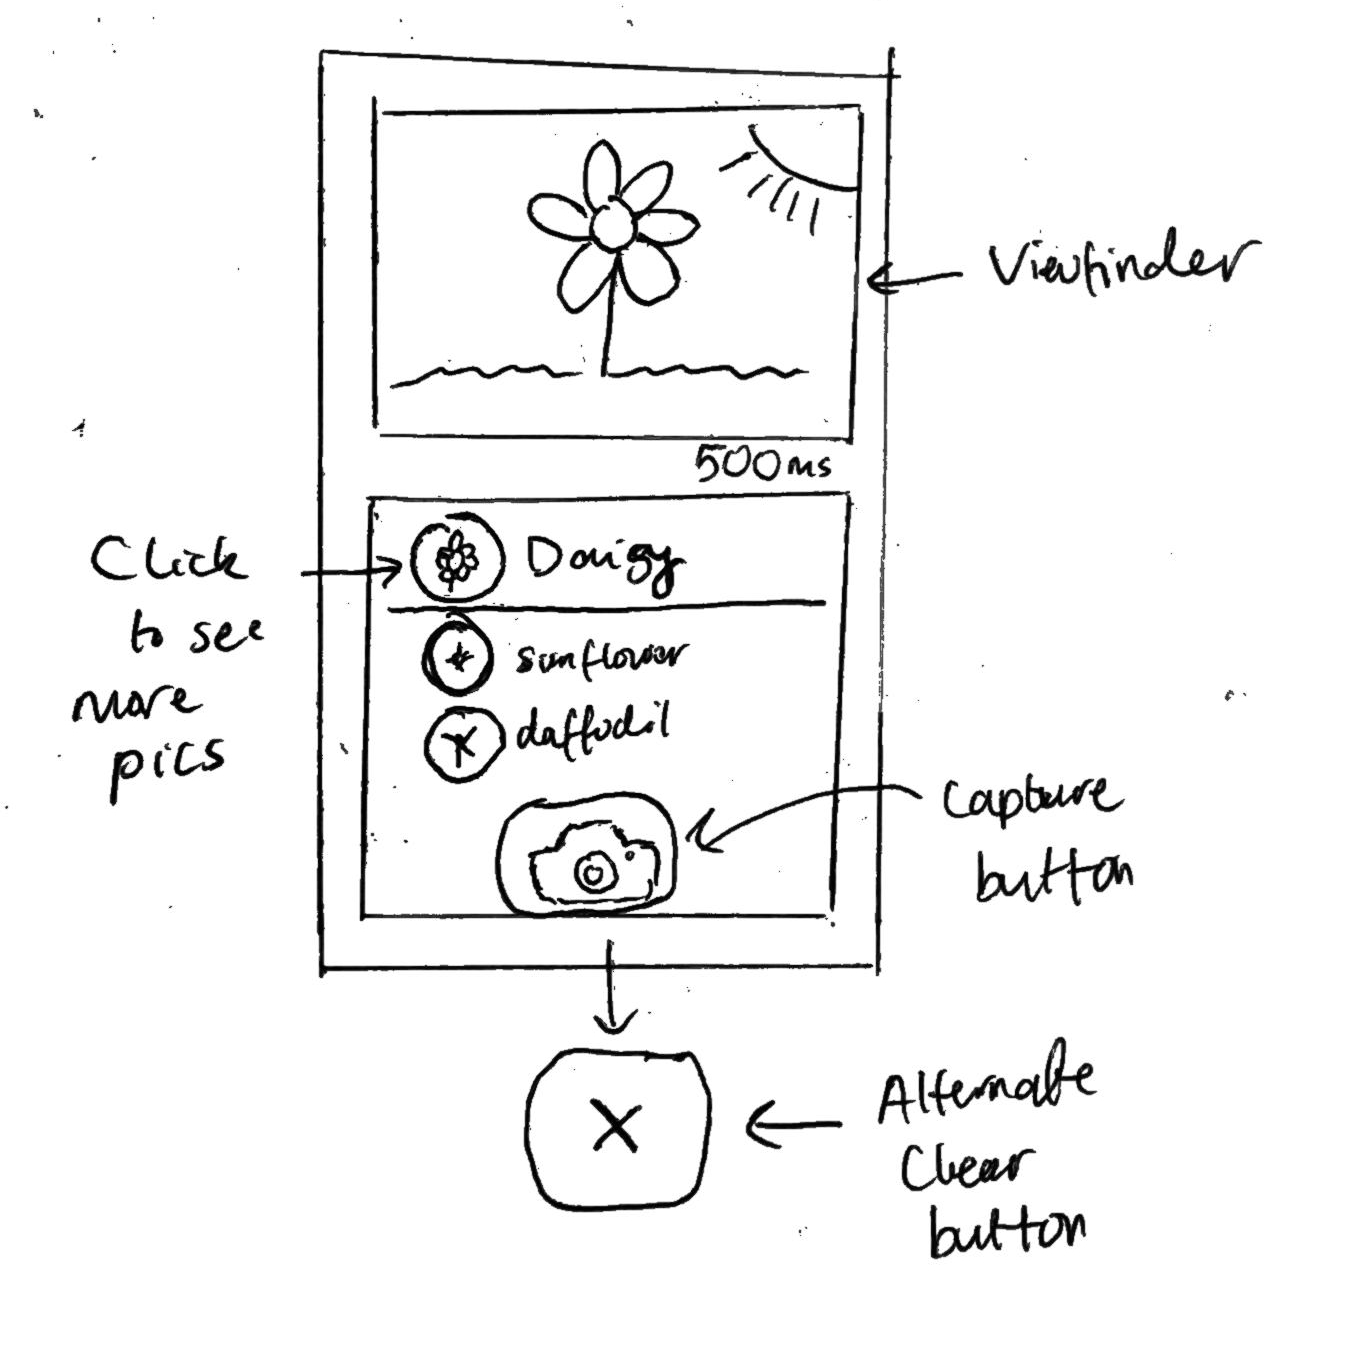 Viewfinder
500ms
Click
to see
more
pics
Daisy
sunflower
daffodil
Capture
button
X
Alternate
Clear
button